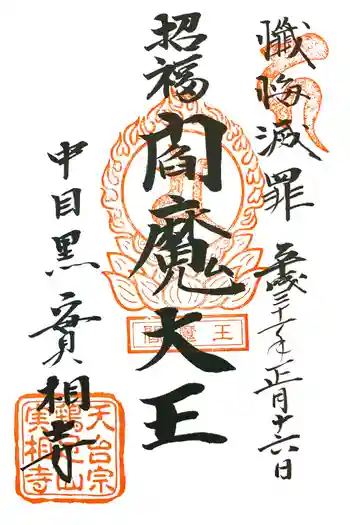 懺悔滅罪
平成三十一年正月十六日
招福
閻魔大王
閻魔王
中目黒實相寺
天台宗
鶏足山
実相寺